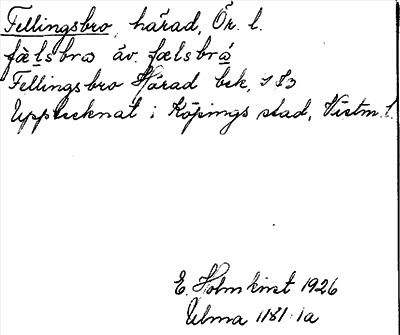 Fellingsbro, härad, Ör. l.
fælsbra äv. fælsbrá
Fellingsbro Härad bek. 183
Upptecknat i Köpings stad, Västm. l.
E. Holmkvist 1926
Ulma 1181:1a